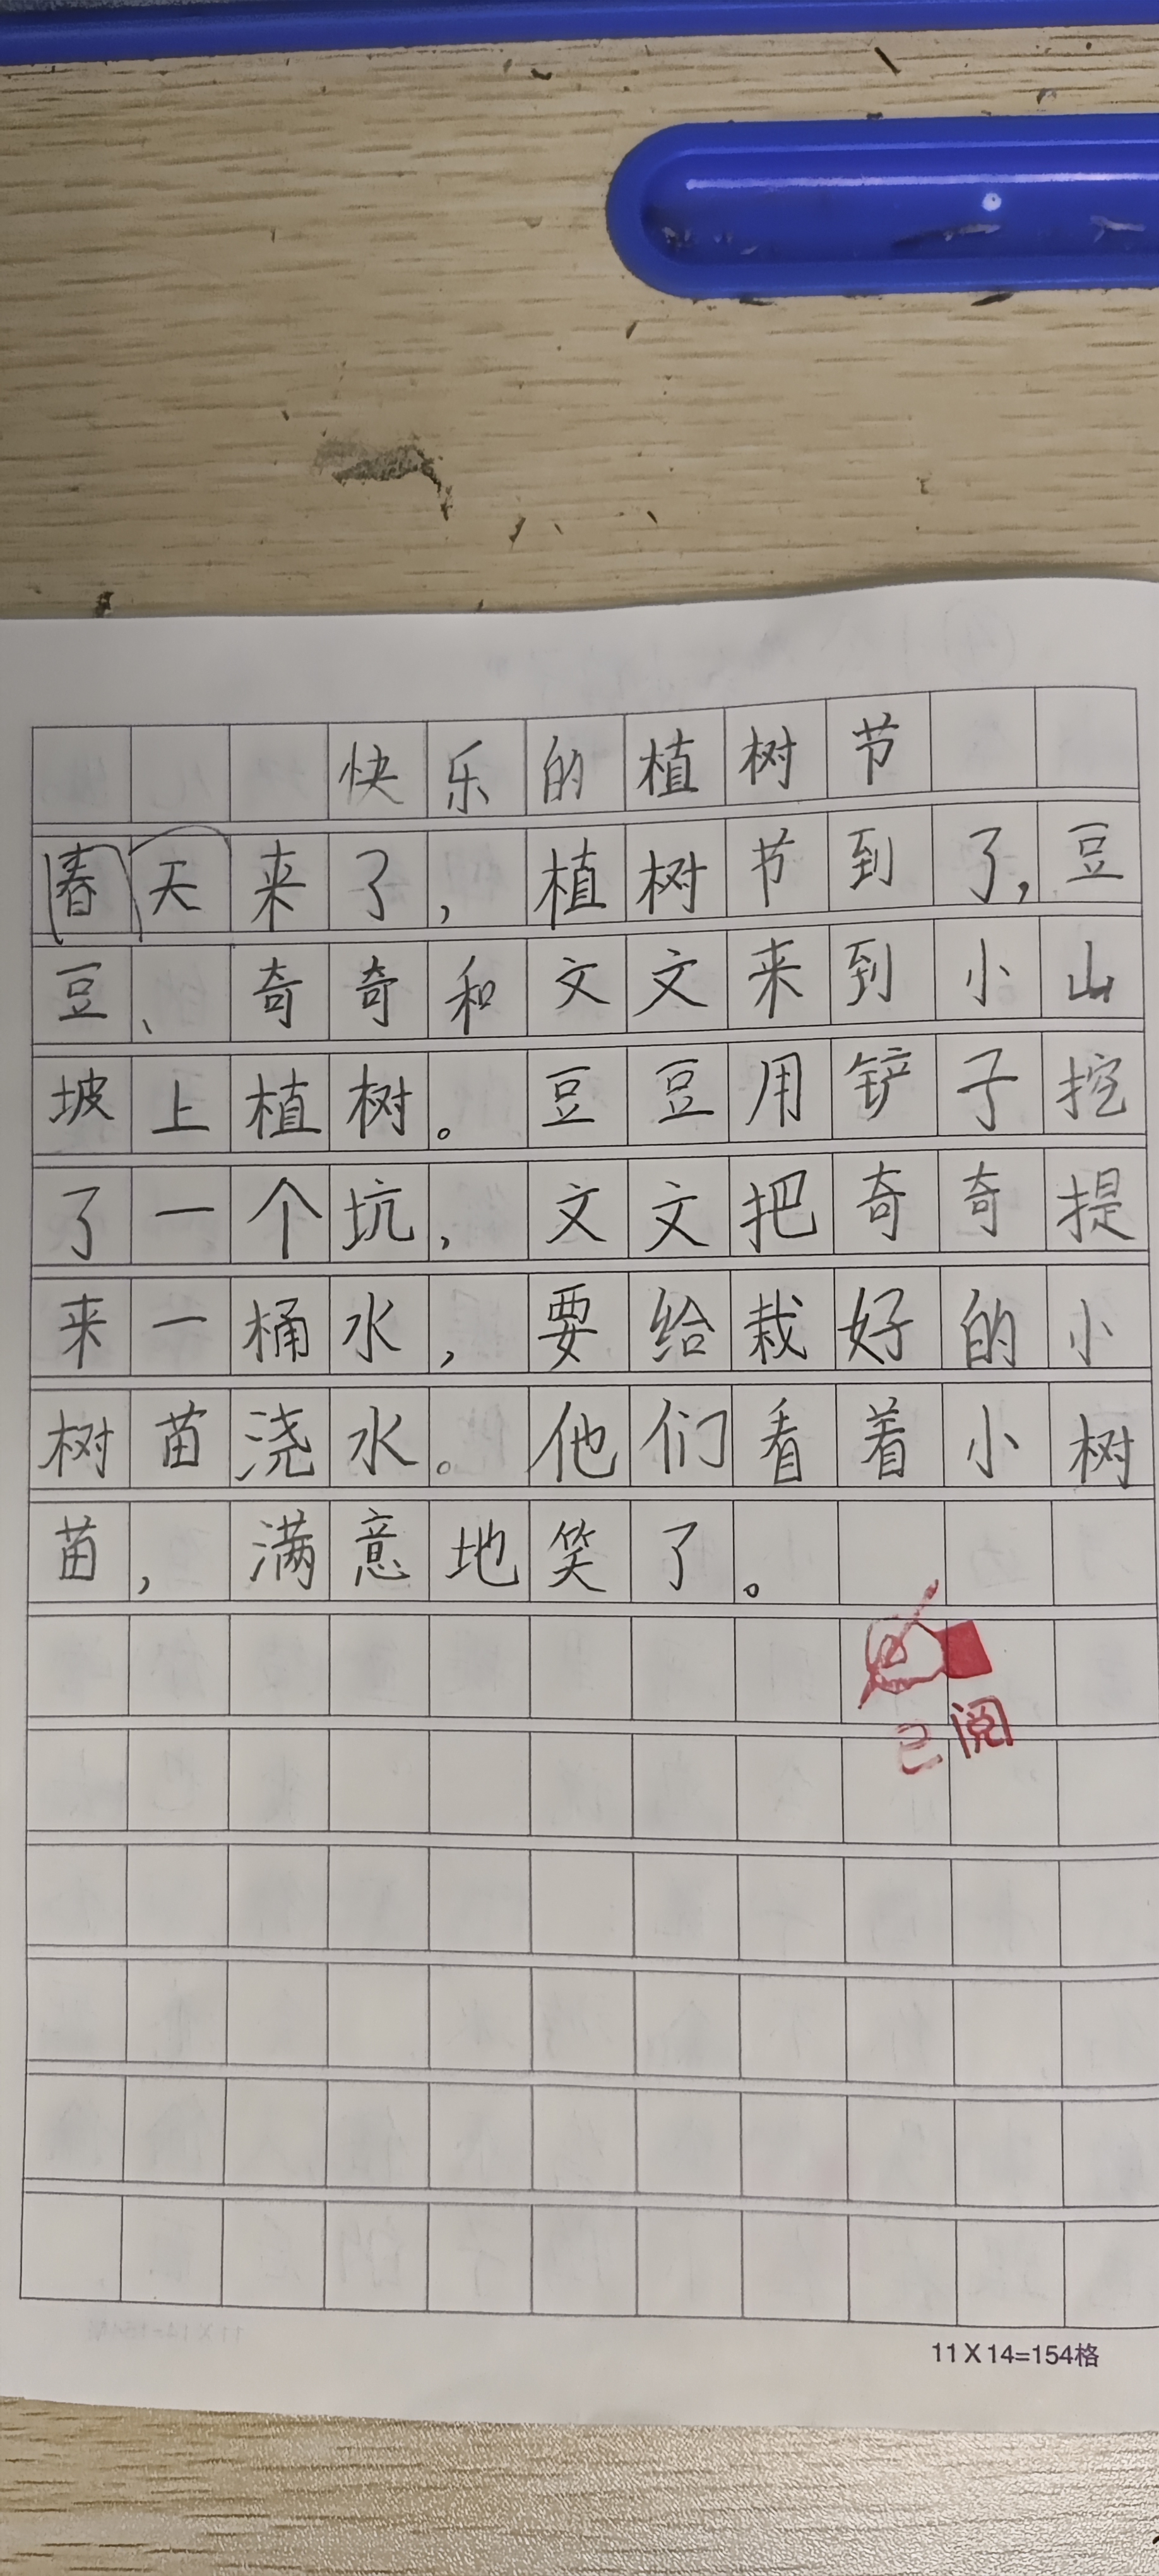 快乐的植树节
春天来了，植树节到了，豆
豆、奇奇和文文来到小山
坡上植树。豆豆用铲子挖
了一个坑，文文把奇奇提
来一桶水，要给栽好的小
树苗浇水。他们看着小树
苗，满意地笑了。
已阅
11X14=154格